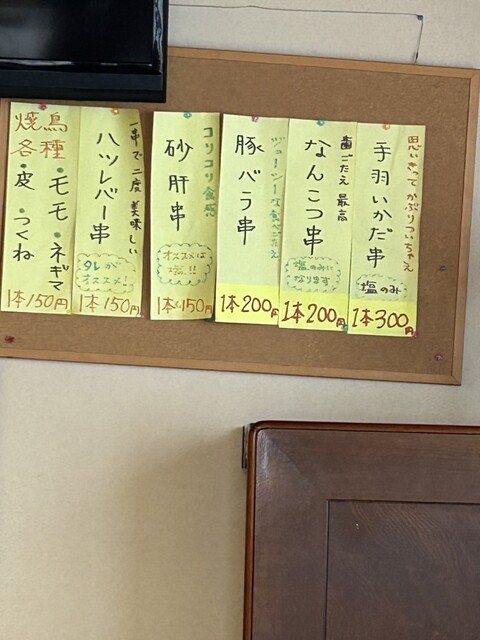 思いきってかぶりついちゃえ
手羽いかだ串
塩のみ
1本300円
歯ごたえ最高
なんこつ串
塩のみに
なります
1本200円
ジューシーな食べごたえ
豚バラ串
1本200円
コリコリ食感
砂肝串
オススメは
塩!!
1本150円
一串で二度美味しい
ハツレバー串
タレが
オススメ!
1本150円
焼鳥
各種
・モモ・ネギマ
・皮・つくね
1本150円